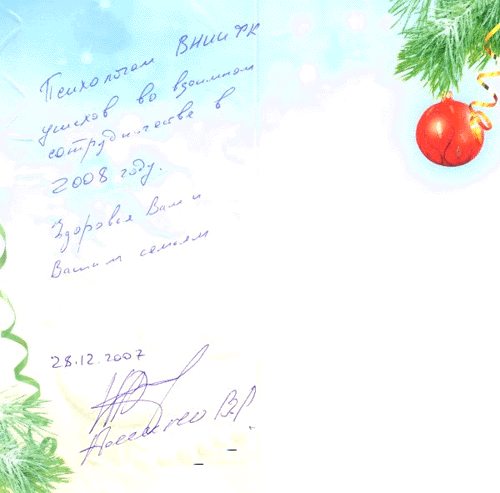 Психологам ВНИИФК
успехов во взаимном
сотрудничестве в
2008 году.
Здоровья Вам и
Вашим семьям
28.12.2007